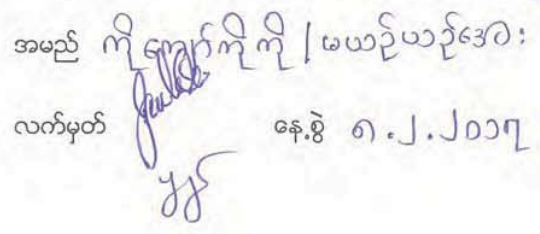 အမည် ကိုကျော်ကိုကို / မယဉ်ယဉ်အေး
လက်မှတ် နေ့စွဲ ၈.၂.၂၀၁၇